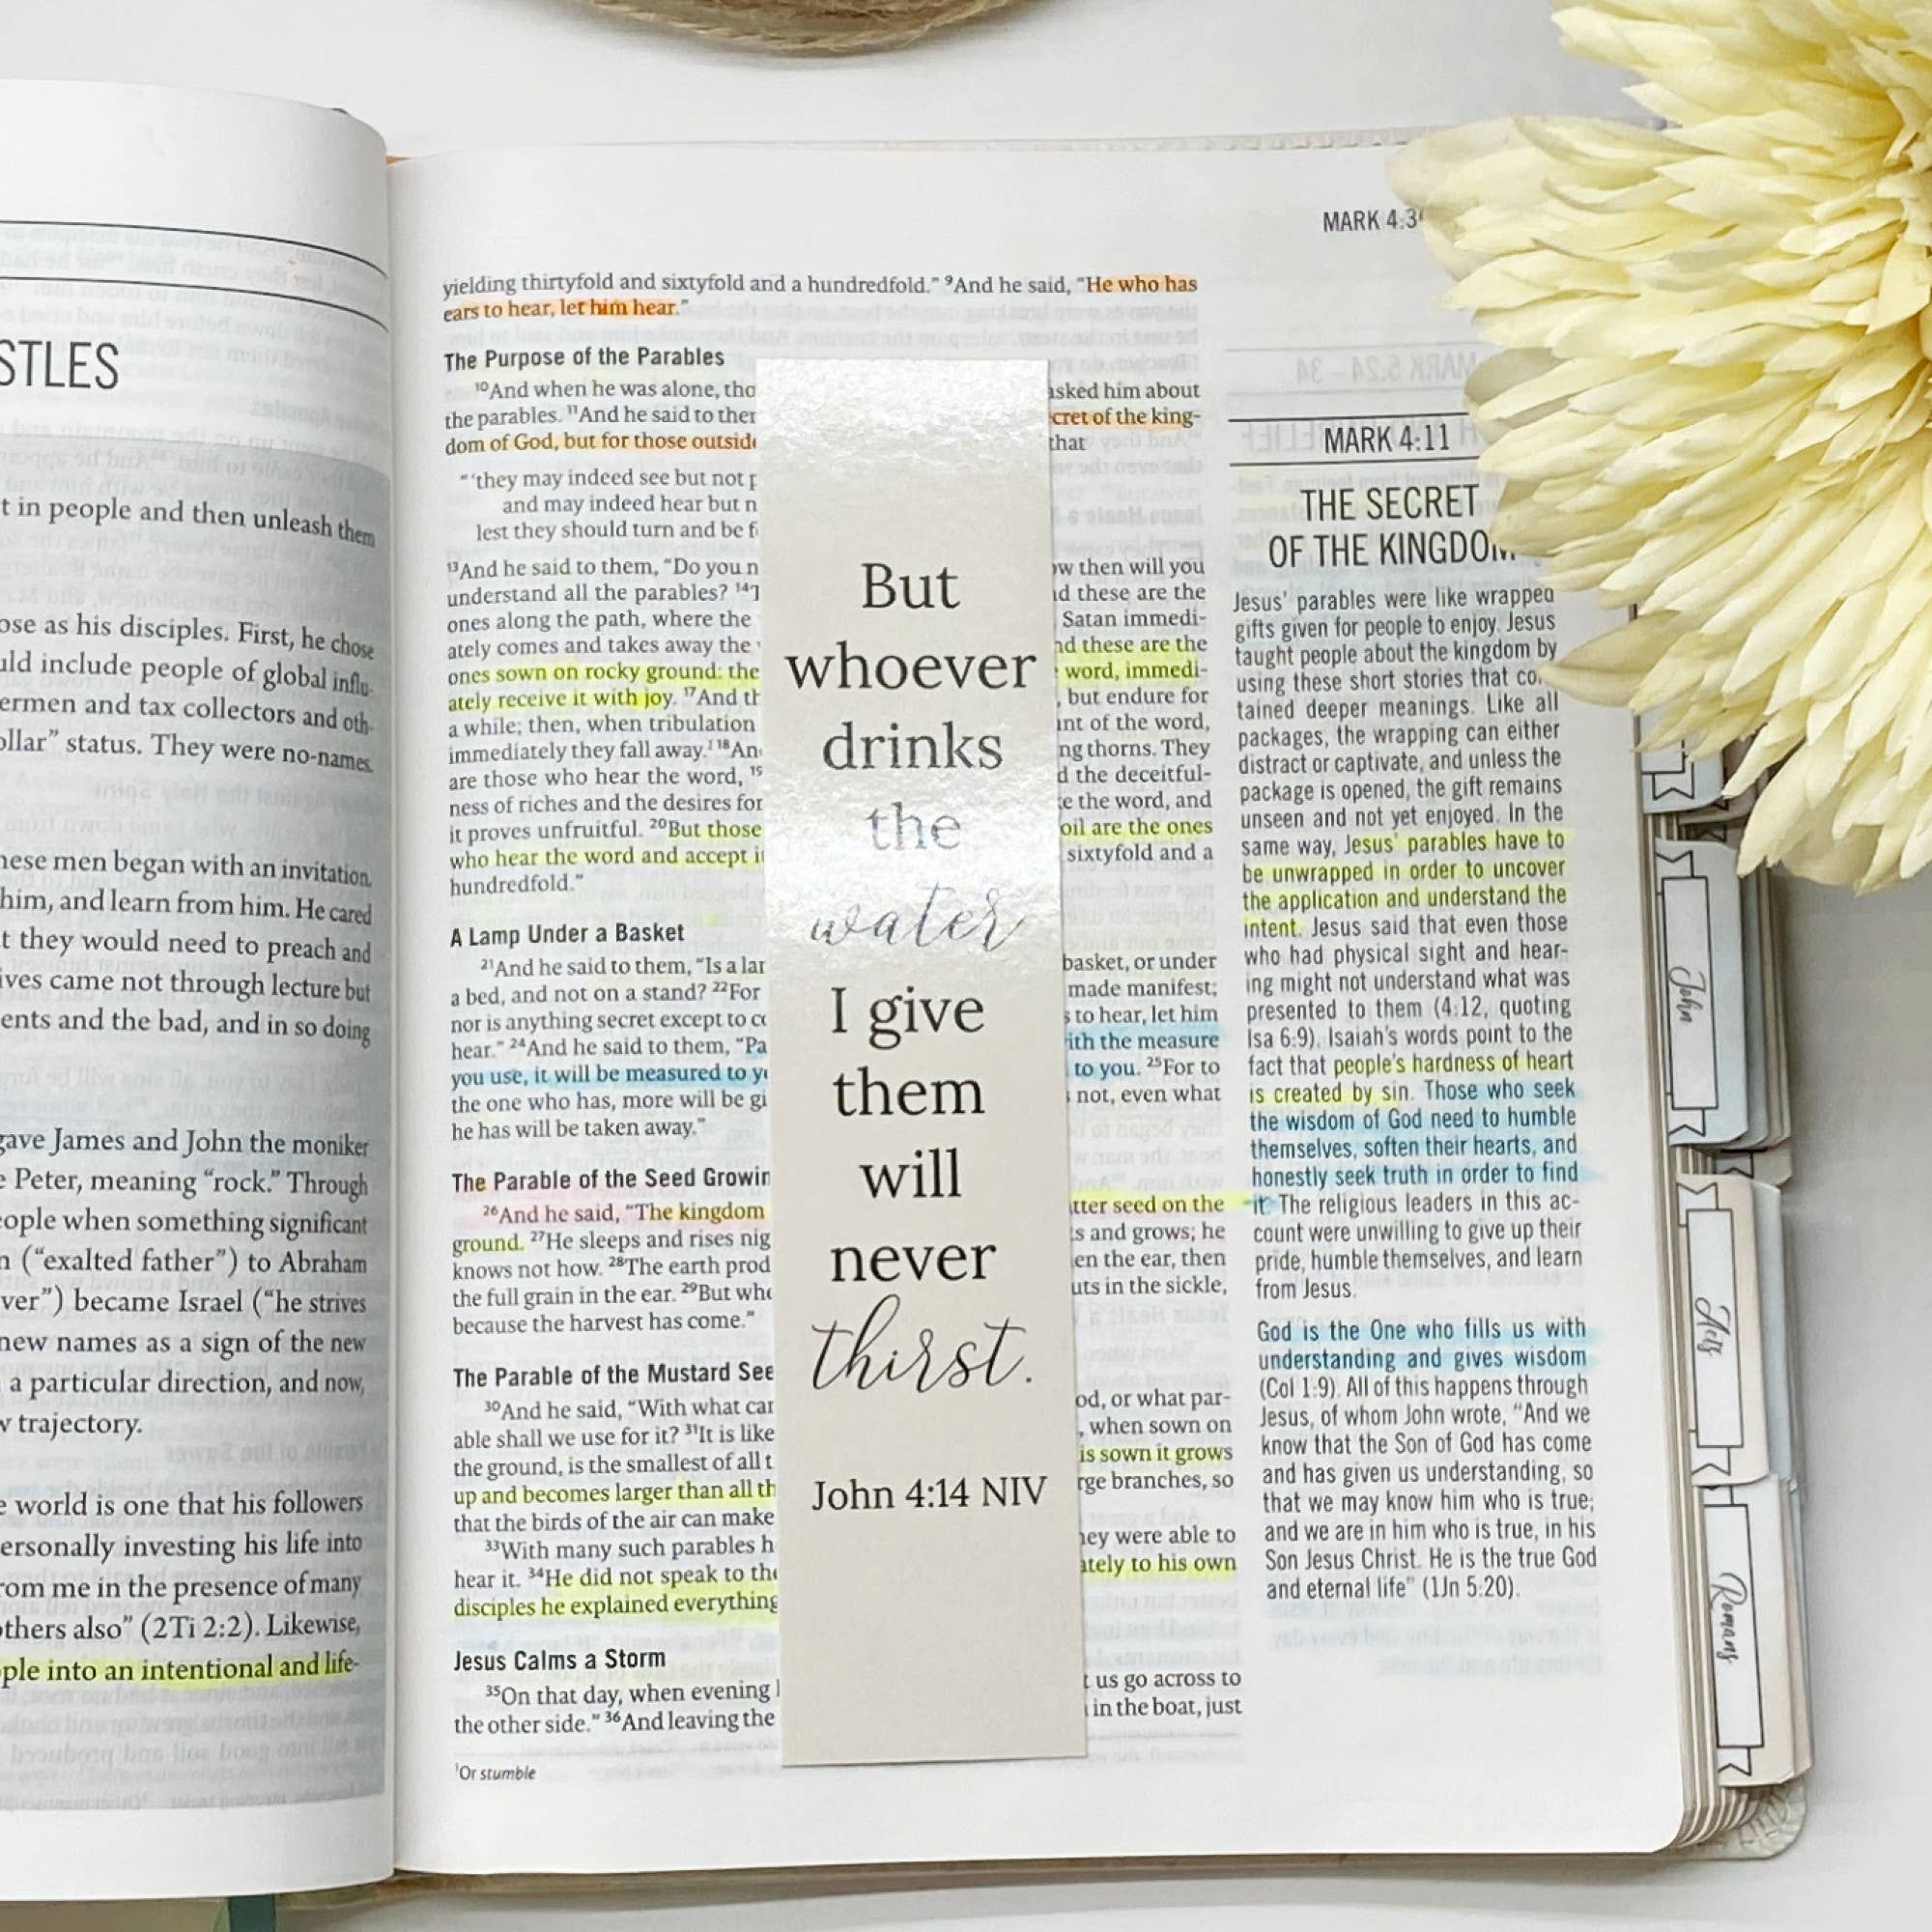 STLES
t in people and then unleash them
ose as his disciples. First, he chose
uld include people of global influ-
ermen and tax collectors and oth-
ollar" status. They were no-names
hese men began with an invitation.
him, and learn from him. He cared
t they would need to preach and
ives came not through lecture but
ents and the bad, and in so doing
gave James and John the moniker
e Peter, meaning "rock." Through
eople when something significant
n ("exalted father") to Abraham
ver") became Israel ("he strives
new names as a sign of the new
a particular direction, and now,
w trajectory.
e world is one that his followers
ersonally investing his life into
rom me in the presence of many
others also" (2Ti 2:2). Likewise,
ple into an intentional and life-
MARK 4:3
yielding thirtyfold and sixtyfold and a hundredfold." 9And he said, "He who has
ears to hear, let him hear."
The Purpose of the Parables
10And when he was alone, tho
the parables. 11And he said to ther
dom of God, but for those outside
"'they may indeed see but not p
and may indeed hear but n
lest they should turn and be f
13And he said to them, "Do you n
understand all the parables? 14T
ones along the path, where the
ately comes and takes away the
ones sown on rocky ground: the
ately receive it with joy. 17And th
a while; then, when tribulation
immediately they fall away.1 18An
are those who hear the word, 19
ness of riches and the desires for
it proves unfruitful. 20But those
who hear the word and accept i
hundredfold."
A Lamp Under a Basket
21And he said to them, "Is a lar
a bed, and not on a stand? 22For
nor is anything secret except to co
hear." 24And he said to them, "Pa
you use, it will be measured to y
the one who has, more will be gi
he has will be taken away."
The Parable of the Seed Growin
26And he said, "The kingdom
ground. 27He sleeps and rises nig
knows not how. 28The earth prod
the full grain in the ear. 29But whe
because the harvest has come."
The Parable of the Mustard See
30And he said, "With what car
able shall we use for it? 31It is like
the ground, is the smallest of all t
up and becomes larger than all th
that the birds of the air can make
33With many such parables h
hear it. 34He did not speak to the
disciples he explained everything
Jesus Calms a Storm
35On that day, when evening
the other side." 36And leaving the
1Or stumble
But
whoever
drinks
the
water
I give
them
will
never
thirst.
John 4:14 NIV
asked him about
cret of the king-
that
ow then will you
d these are the
Satan immedi-
nd these are the
word, immedi-
, but endure for
nt of the word,
ng thorns. They
d the deceitful-
e the word, and
oil are the ones
sixtyfold and a
basket, or under
made manifest;
s to hear, let him
ith the measure
to you. 25For to
not, even what
tter seed on the
s and grows; he
en the ear, then
uts in the sickle,
od, or what par-
, when sown on
is sown it grows
rge branches, so
hey were able to
ately to his own
t us go across to
in the boat, just
MARK 4:11
THE SECRET
OF THE KINGDOM
Jesus' parables were like wrapped
gifts given for people to enjoy. Jesus
taught people about the kingdom by
using these short stories that con-
tained deeper meanings. Like all
packages, the wrapping can either
distract or captivate, and unless the
package is opened, the gift remains
unseen and not yet enjoyed. In the
same way, Jesus' parables have to
be unwrapped in order to uncover
the application and understand the
intent. Jesus said that even those
who had physical sight and hear-
ing might not understand what was
presented to them (4:12, quoting
Isa 6:9). Isaiah's words point to the
fact that people's hardness of heart
is created by sin. Those who seek
the wisdom of God need to humble
themselves, soften their hearts, and
honestly seek truth in order to find
it. The religious leaders in this ac-
count were unwilling to give up their
pride, humble themselves, and learn
from Jesus.
God is the One who fills us with
understanding and gives wisdom
(Col 1:9). All of this happens through
Jesus, of whom John wrote, "And we
know that the Son of God has come
and has given us understanding, so
that we may know him who is true;
and we are in him who is true, in his
Son Jesus Christ. He is the true God
and eternal life" (1Jn 5:20).
John
Acts
Romans